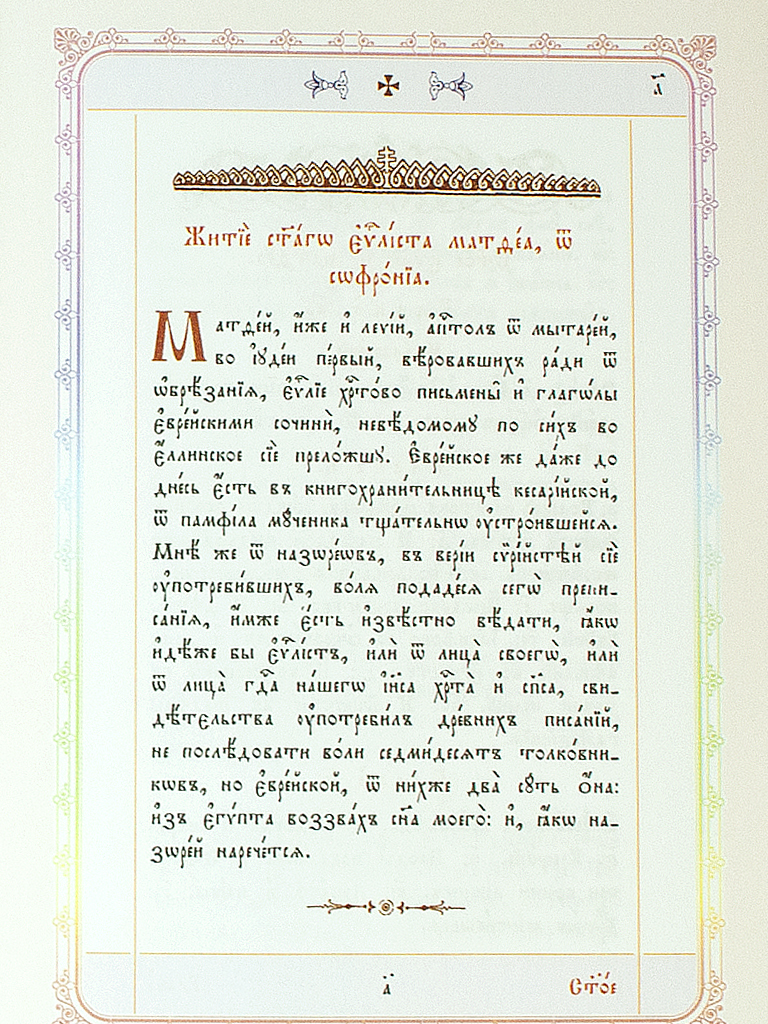 а҃
Житїѐ ст҃а́гѡ є҆ѵⷢ҇лі́ста матѳе́а, ѿ
сѡфро́нїа.
Матѳе́й, и҆́же и҆ леѵі́й, а҆пⷭ҇толъ ѿ мытаре́й,
во і҆ꙋде́и пе́рвый, вѣ́ровавшихъ ра́ди ѿ
ѡ҆брѣ́занїѧ, є҆ѵⷢ҇лїе хрⷭ҇то́во письмены̑ и҆ глаго́лы
є҆вре́йскими сочинѝ, невѣ́домомꙋ по си́хъ во
є҆́ллинское сїѐ прело́жшꙋ. Є҆вре́йское же да́же до
дне́сь є҆́сть въ книгохрани́тельницѣ кесарі́йской,
ѿ памфі́ла мꙋ́ченика тща́тельнѡ ᲂу҆стро́ившейсѧ.
Мнѣ́ же ѿ назѡре́ѡвъ, въ вері́и сѷрі́йстѣй сїѐ
ᲂу҆потреби́вшихъ, во́лѧ подаде́сѧ сегѡ̀ препи-
са́нїѧ, и҆́мже є҆́сть и҆звѣ́стно вѣ́дати, ꙗ҆́кѡ
и҆дѣ́же бы є҆ѵⷢ҇лі́стъ, и҆лѝ ѿ лица̀ своегѡ̀, и҆лѝ
ѿ лица̀ гдⷭ҇а на́шегѡ і҆и҃са хрⷭ҇та̀ и҆ сп҃са, сви-
дѣ́тєльства ᲂу҆потреби́лъ дре́внихъ писа́нїй,
не послѣ́довати во́ли седми́десѧтъ толко́вни-
кѡвъ, но є҆вре́йской, ѿ ни́хже два̀ сꙋ́ть ѻ҆́на:
и҆зъ є҆гѵ́пта воззва́хъ сн҃а моего̀: и҆, ꙗ҆́кѡ на-
зѡре́й нарече́тсѧ.
а҃ Ст҃о́е